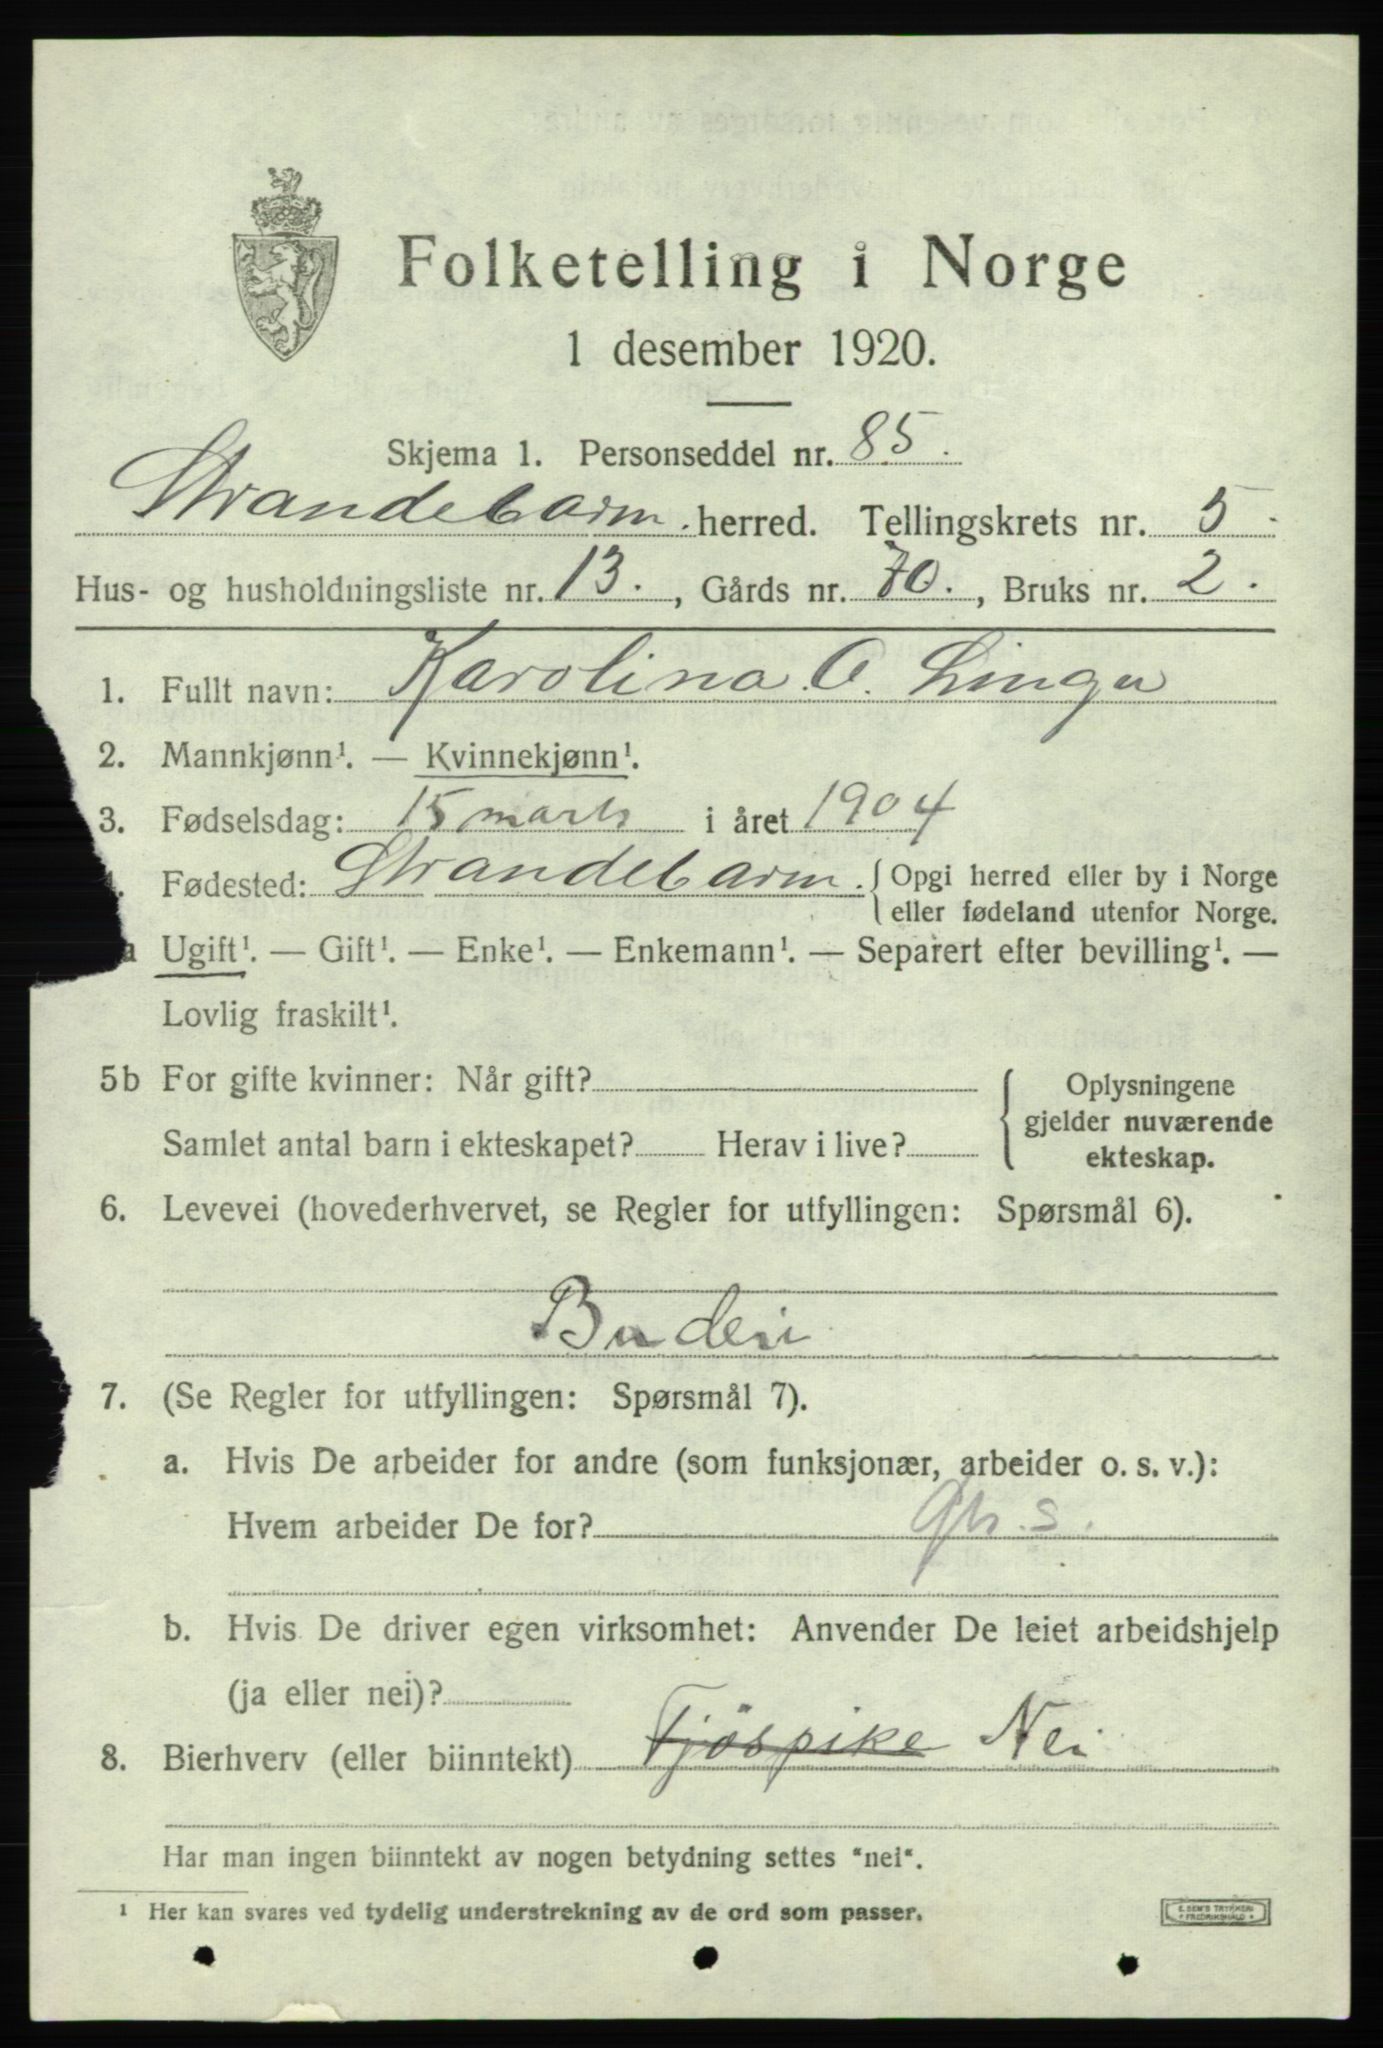 Folketelling i Norge
1 desember 1920.
Skjema 1. Personseddel nr. 85.
Strandebarm. herred. Tellingskrets nr. 5.
Hus- og husholdningsliste nr. 13., Gårds nr. 70., Bruks nr. 2.
1. Fullt navn: Karolina O. Linga
2. Mannkjønn¹. — Kvinnekjønn¹.
3. Fødselsdag: 15 marts i året 1904
Fødested: Strandebarm. { Opgi herred eller by i Norge
eller fødeland utenfor Norge.
a Ugift¹. — Gift¹. — Enke¹. — Enkemann¹. — Separert efter bevilling¹. —
Lovlig fraskilt¹.
5b For gifte kvinner: Når gift? { Oplysningene
gjelder nuværende
Samlet antal barn i ekteskapet? Herav i live?
ekteskap.
6. Levevei (hovederhvervet, se Regler for utfyllingen: Spørsmål 6).
Budeie
7. (Se Regler for utfyllingen: Spørsmål 7).
a. Hvis De arbeider for andre (som funksjonær, arbeider o. s. v.):
Hvem arbeider De for?
b. Hvis De driver egen virksomhet: Anvender De leiet arbeidshjelp
(ja eller nei)?
8. Bierhverv (eller biinntekt) Fjöspike Nei
Har man ingen biinntekt av nogen betydning settes "nei".
¹ Her kan svares ved tydelig understrekning av de ord som passer.
E. SEM'S TRYKKERI
FREDRIKSHALD